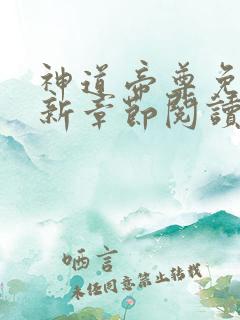 神道帝尊免
新章節閱讀
哂言
未经同意禁止转载